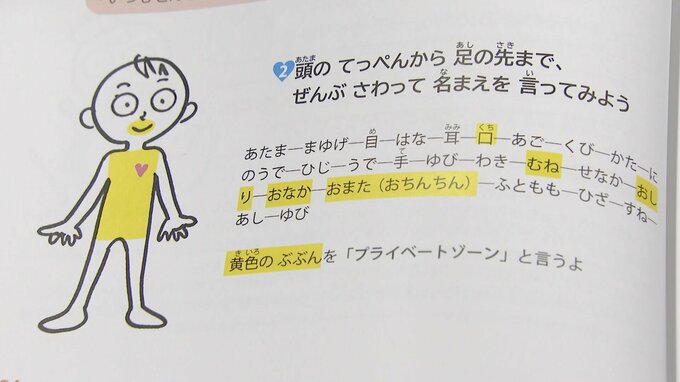 2 頭の てっぺんから 足の先まで、
ぜんぶ さわって 名まえを 言ってみよう
あたま―まゆげ―目―はな―耳―口―あご―くび―かた―に
のうで―ひじ―うで―手―ゆび―わき―むね―せなか―おし
り―おなか―おまた（おちんちん）―ふともも―ひざ―すね―
あし―ゆび
黄色の ぶぶんを「プライベートゾーン」と言うよ